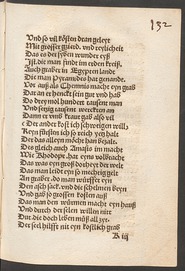 132
Und so vil kosten dran geleyt
Mit grosser gzierd, und reylicheit
Das es der syben wunder eyß
Ist die man findt im erden kreiß.
Auch graber in Egypten landt
Die man Pyramides hat genandt.
Vor auß als Chemnis macht eyn grab
Dar an er henckt sein gut und hab
Do drey mol hundert tausent man
Und sechtzig tausent wercken an
Dann er umb kraut gab also vil
Der ander kost ich schweigen will
Keyn fürsten ich so reich yetz halt
Der das alleyn möcht han bezalt.
Des gleich auch Amasis im macht
Wie Rhodope hat eyn volbracht
Das was der welt eyn groß dorheyt
Das man leid eyn so mechtig geleit
An gräber, do man würffet eyn
Den äsch sack, und die schelmen beyn
Und gab so grossen kosten auß
Das man den würmen macht eyn hauß
Und durch der selen willen nitt
Dut die doch leben müß all zyt,
Der sel hilfft nit eyn kostlich grab
R iij